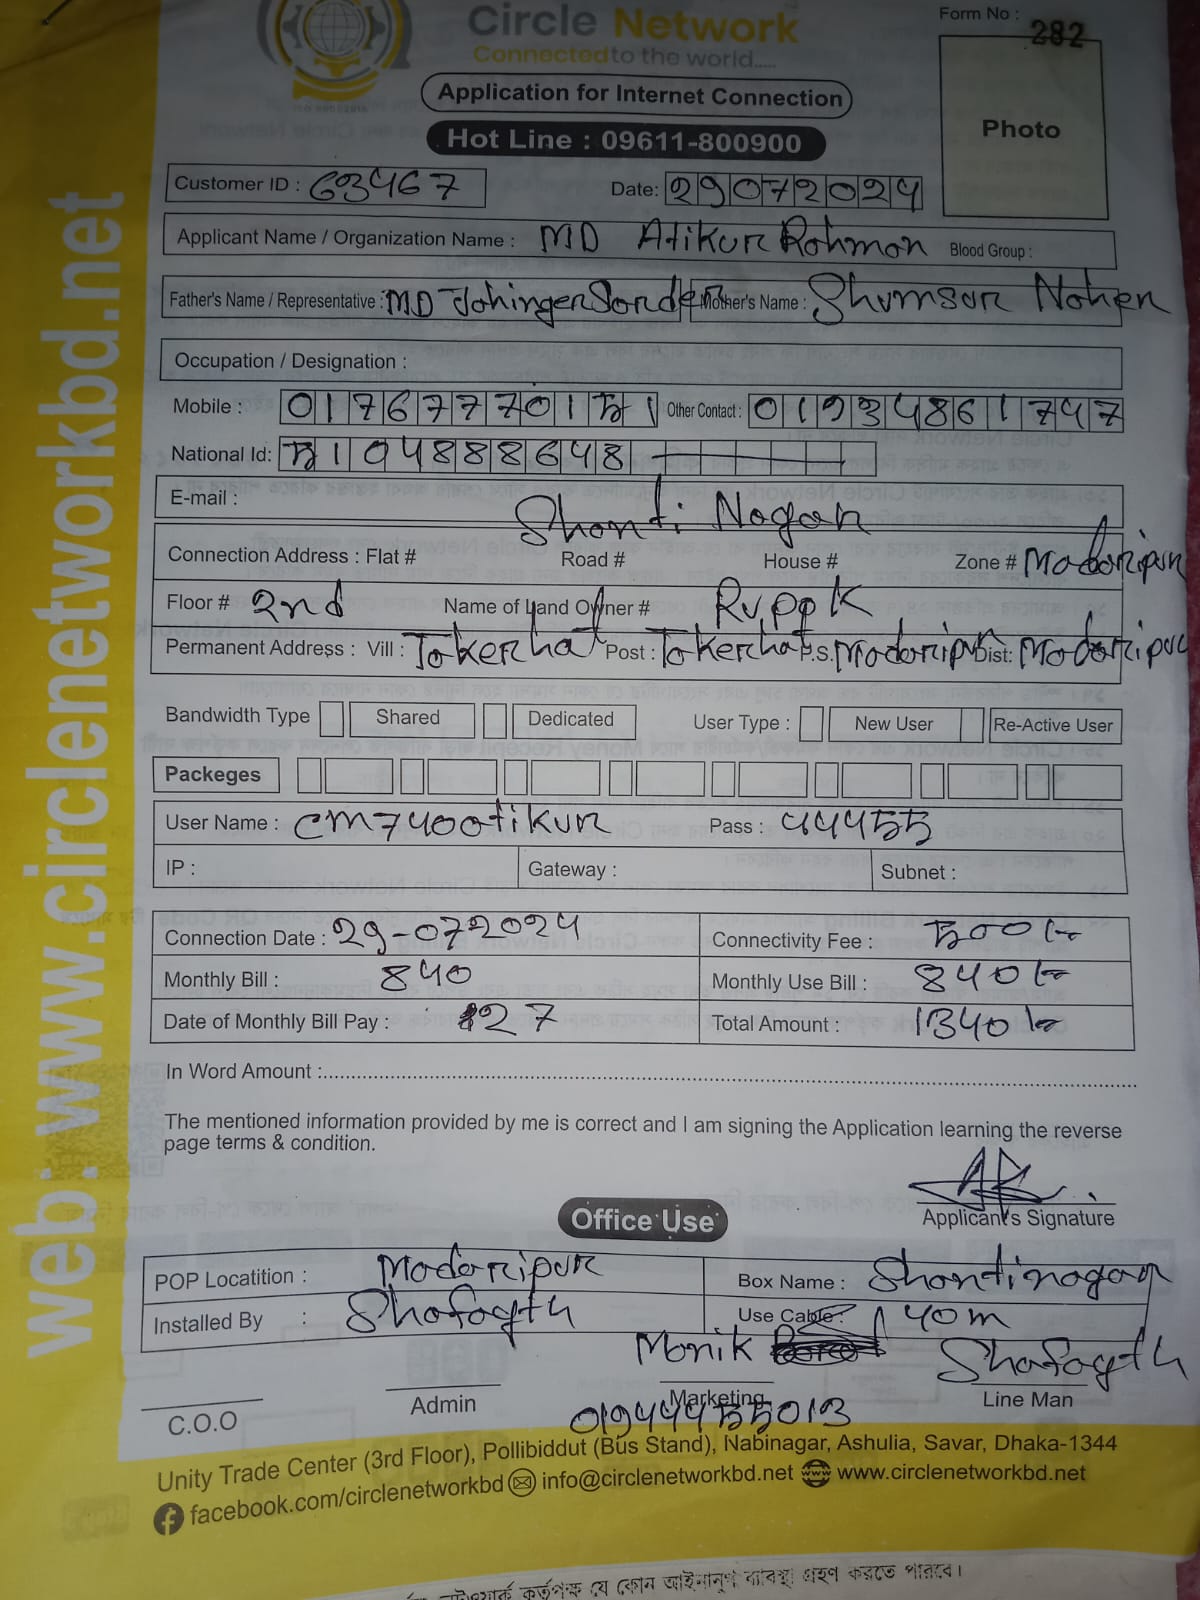 Circle Network
Connected to the world.....
Form No : 282
Application for Internet Connection
Photo
Hot Line : 09611-800900
Customer ID : 63467 Date: 29072024
Applicant Name / Organization Name : MD Atikur Rohmon Blood Group :
Father's Name / Representative : MD Johinger Sorder Mother's Name : Shumsur Noher
Occupation / Designation :
Mobile : 01767770151 Other Contact : 01934861747
National Id: 5104888648
E-mail :
Shonti Nogor
Connection Address : Flat # Road # House # Zone # Modoripur
Floor # 2nd Name of Land Owner #
Permanent Address : Vill : Tokerhat Post : Tokerhat P.S. Modoripur Dist: Modoripur
Bandwidth Type Shared Dedicated User Type : New User Re-Active User
Packeges
User Name : cm7400tikur Pass : 44455
IP : Gateway : Subnet :
Connection Date : 29-072024 Connectivity Fee : 500/-
Monthly Bill : 840 Monthly Use Bill : 840/-
Date of Monthly Bill Pay : 27 Total Amount : 1340/-
In Word Amount :
The mentioned information provided by me is correct and I am signing the Application learning the reverse
page terms & condition.
Applicant's Signature
Office Use
POP Locatition : Modoripur Box Name : Shontinogor
Installed By : Shofogth Use Cable : 40m
Monik Shofogth
C.O.O Admin Marketing Line Man
01944455013
Unity Trade Center (3rd Floor), Pollibiddut (Bus Stand), Nabinagar, Ashulia, Savar, Dhaka-1344
facebook.com/circlenetworkbd info@circlenetworkbd.net www.circlenetworkbd.net
web: www.circlenetworkbd.net
কর্তৃপক্ষ যে কোন আইনানুগ ব্যবস্থা গ্রহণ করতে পারবে।